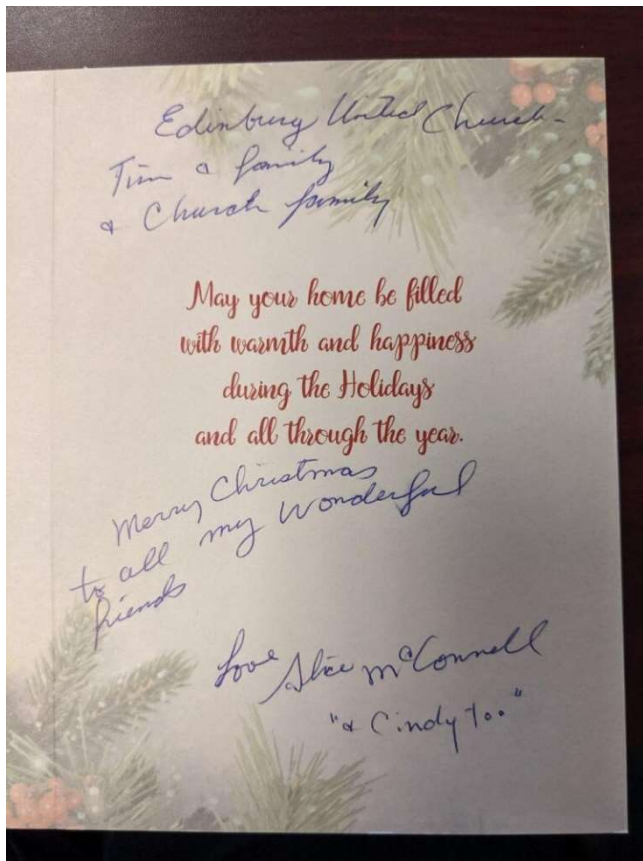 Edinburg United Church -
Tim & family
& Church family
May your home be filled
with warmth and happiness
during the Holidays
and all through the year.
Merry Christmas
to all my wonderful
friends
Love Alice McConnell
"& Cindy too"